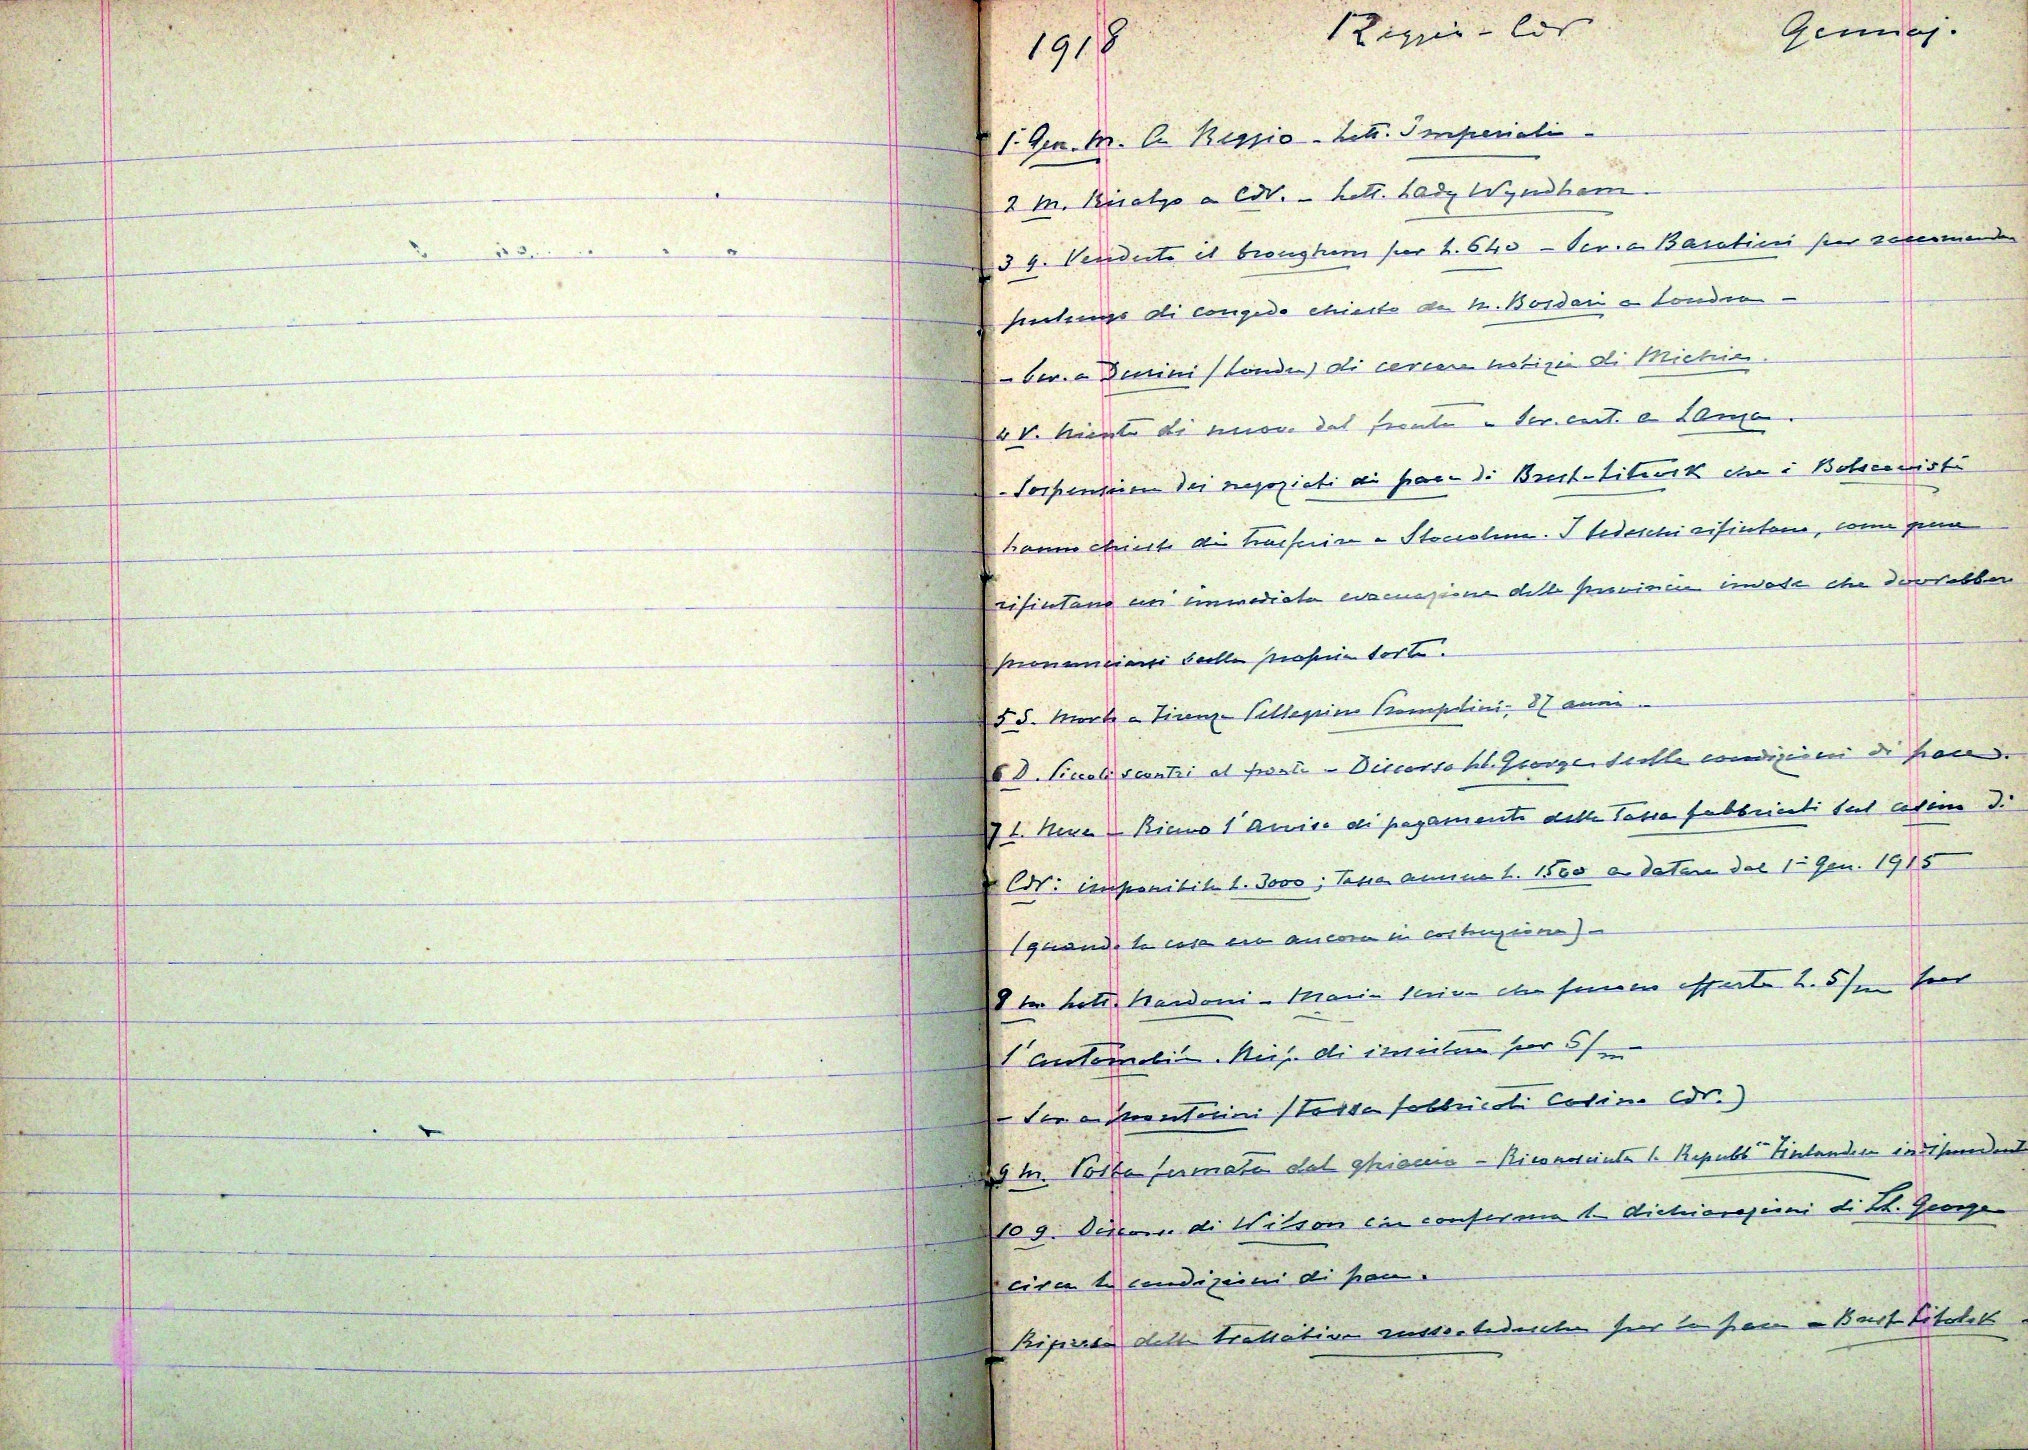 1918 Reggio - CdV Gennaj.
1° Gen. M. A Reggio - Lett. Imperiali -
2 M. Risalgo a CdV. - Lett. Lady Wyndham.
3 G. Venduto il brougham per L. 640 - Scr. a Baratieri per raccomandar
prolungo di congedo chiesto da M. Bordari a Londra -
- Scr. a Durini (Londra) di cercare notizie di Michier.
4 V. Niente di nuovo dal fronte - Scr. cart. a Lanza.
- Sospensione dei negoziati di pace di Brest-Litowsk che i Bolscevisti
hanno chiesto di trasferire a Stoccolma. I tedeschi rifiutano, come pure
rifiutano un' immediata evacuazione delle provincie invase che dovrebbero
pronunciarsi sulla propria sorte.
5 S. Morto a Firenze Pellegrino Prampolini, 87 anni -
6 D. Piccoli scontri al fronte - Discorso Ll. George sulle condizioni di pace.
7 L. Neve - Ricevo l'avviso di pagamento della Tassa fabbricati sul casino di
CdV: imponibile L. 3000; Tassa annua L. 1500 a datare dal 1° Gen. 1915
(quando la casa era ancora in costruzione) -
8 M. Lett. Nardoni - Maria scrive che fu offerto L. 5/m per
l'automobile. Risp. di insistere per 5/m -
- Scr. a Montorini (Tassa fabbricati Casino CdV.)
9 M. Posta fermata dal ghiaccio - Riconosciuta la Repubb^ca Finlandese indipendente
10 G. Discorso di Wilson che conferma le dichiarazioni di Ll. George
circa le condizioni di pace.
Ripresa delle trattative russo-tedesche per la pace a Brest-Litolsk -